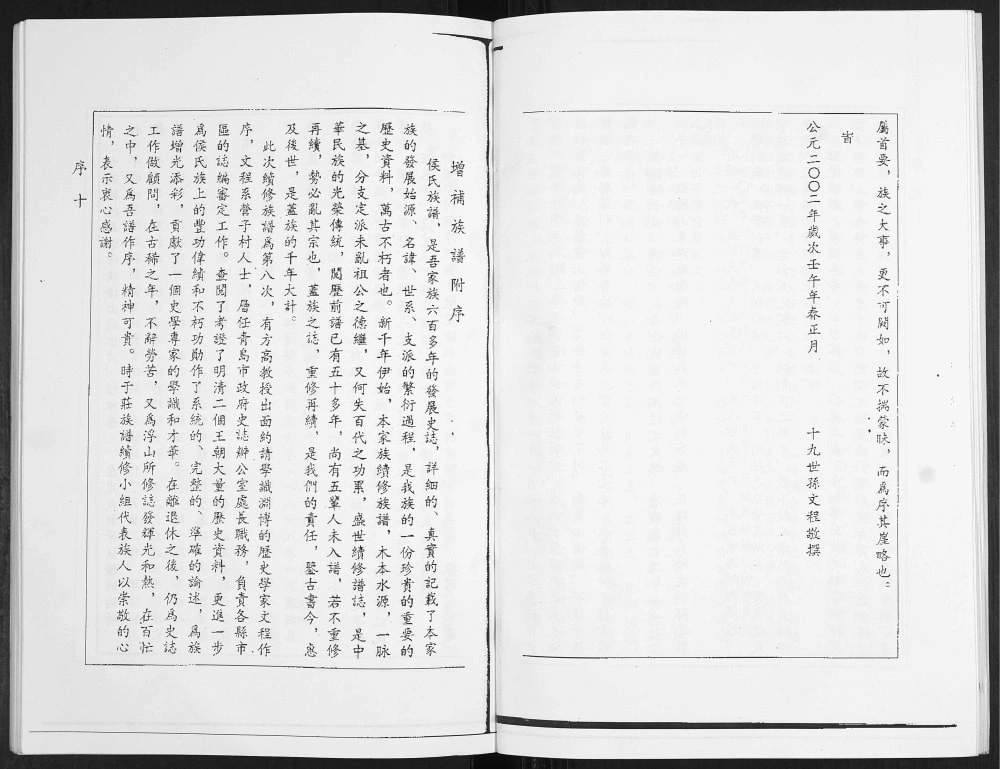 屬首要，族之大事，更不可闕如，故不揣蒙昧，而爲序其崖略也。
旹
公元二〇〇二年歲次壬午年春正月　十九世孫文程敬撰
增補族譜附序
侯氏族譜，是吾家族六百多年的發展史誌，詳細的、真實的記載了本家
族的發展始源、名諱、世系、支派的繁衍過程，是我族的一份珍貴的重要的
歷史資料，萬古不朽者也。新千年伊始，本家族續修族譜，木本水源，一脉
之基，分支定派未亂祖公之德繼，又何失百代之功累，盛世續修譜誌，是中
華民族的光榮傳統，閱歷前譜已有五十多年，尚有五輩人未入譜，若不重修
再續，勢必亂其宗也，蓋族之誌，重修再續，是我們的責任，鑒古書今，惠
及後世，是蓋族的千年大計。
此次續修族譜爲第八次，有方高教授出面約請學識淵博的歷史學家文程作
序，文程系營子村人士，曆任青島市政府史誌辦公室處長職務，負責各縣市
區的誌編審定工作。查閱了考證了明清二個王朝大量的歷史資料，更進一步
爲侯氏族上的豐功偉績和不朽功勛作了系統的、完整的、準確的論述，爲族
譜增光添彩，貢獻了一個史學專家的學識和才華。在離退休之後，仍爲史誌
工作做顧問，在古稀之年，不辭勞苦，又爲浮山所修誌發輝光和熱，在百忙
之中，又爲吾譜作序，精神可貴。時于莊族譜續修小組代表族人以崇敬的心
情，表示衷心感謝。
序十